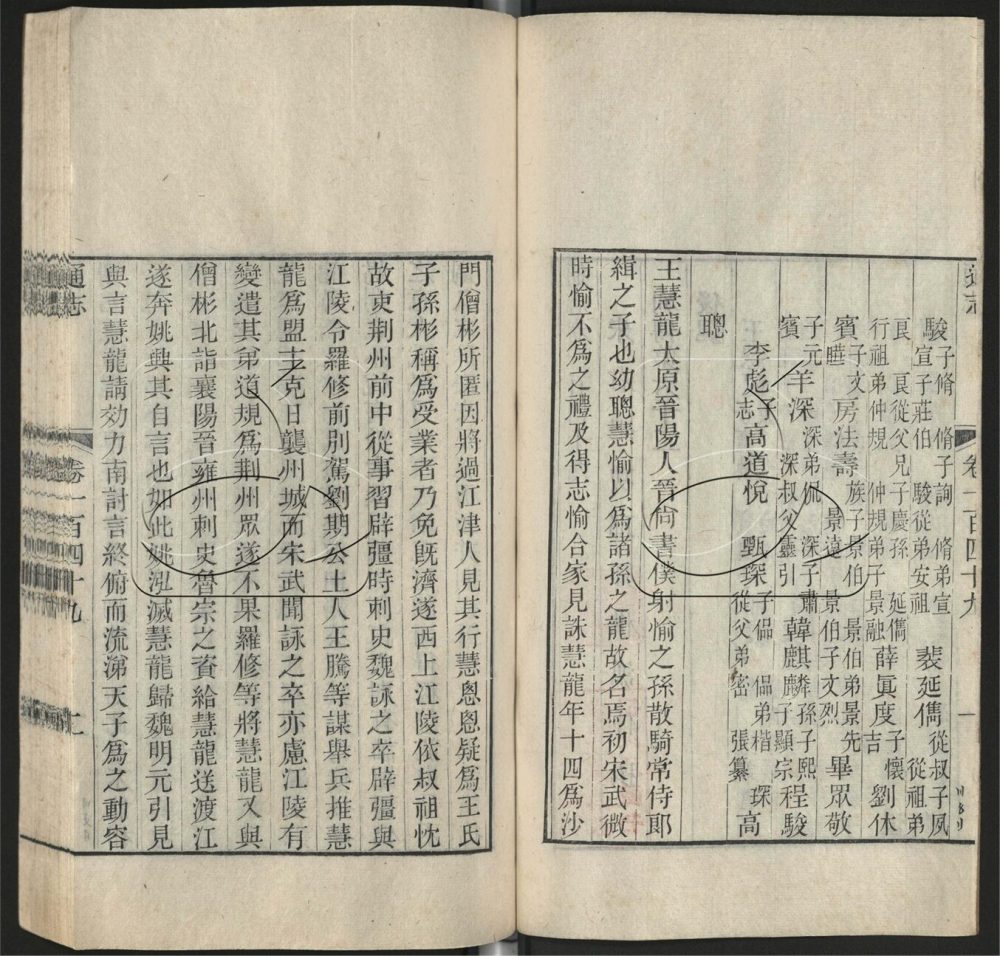 通志 卷一百四十九 一
駿子脩 脩子詢 脩弟宣 宣子莊伯 駿從弟安祖 裴延儁從叔子夙 從祖弟
良 良從父兄子慶孫 延儁行祖弟仲規 仲規弟子景融 薛眞度子懷吉 劉休
賓子文曄 房法壽族子景伯 景伯弟景先 景遠 景伯子文烈 畢眾敬
子元賓 羊深深弟侃 深子肅 深叔父靈引 韓麒麟子顯宗 孫子熙 程駿
李彪子志 高道悅 甄琛子侃 侃弟楷 從父弟密 張纂 琛 高
聰
王慧龍太原晉陽人晉尙書僕射愉之孫散騎常侍郎
緝之子也幼聰慧愉以爲諸孫之龍故名焉初宋武微
時愉不爲之禮及得志愉合家見誅慧龍年十四爲沙
門僧彬所匿因將過江津人見其行慧悤悤疑爲王氏
子孫彬稱爲受業者乃免旣濟遂西上江陵依叔祖忱
故吏荆州前中從事習辟彊時刺史魏詠之卒辟彊與
江陵令羅修前別駕劉期公土人王騰等謀舉兵推慧
龍爲盟主克日襲州城而宋武聞詠之卒亦慮江陵有
變遣其弟道規爲荆州眾遂不果羅修等將慧龍又與
僧彬北詣襄陽晉雍州刺史魯宗之資給慧龍送渡江
遂奔姚興其自言也如此姚泓滅慧龍歸魏明元引見
與言慧龍請効力南討言終俯而流涕天子爲之動容
通志 卷一百四十九 二